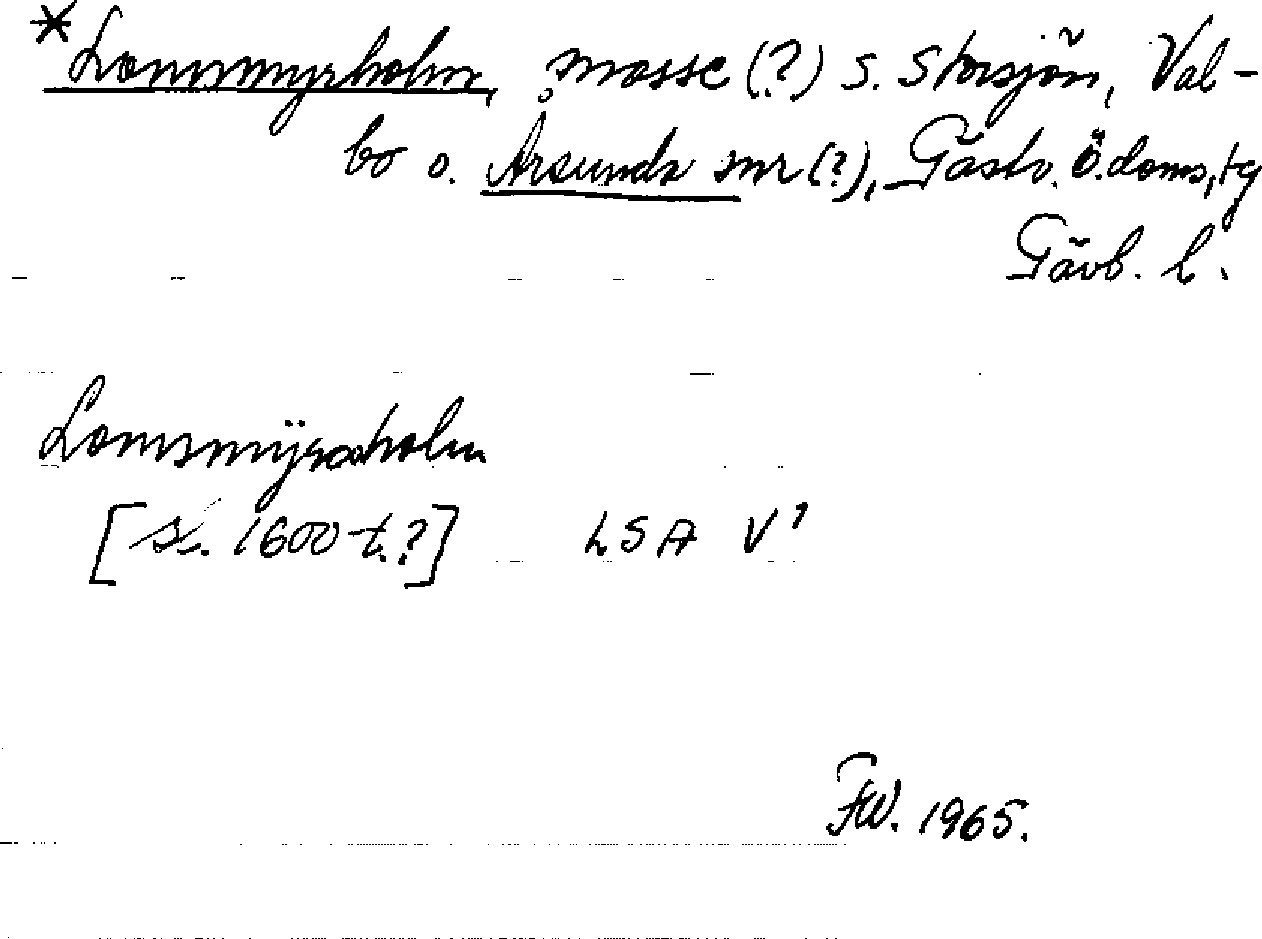 *Lommmyrholm, mosse (?) S. Storsjön, Val-
bo o. Årsunda snr (?), Gästr. Ö. doms, tg
Gävb. l.
Lomsmÿraholm
[sl. 1600 t.?] LSA V¹
FW. 1965.